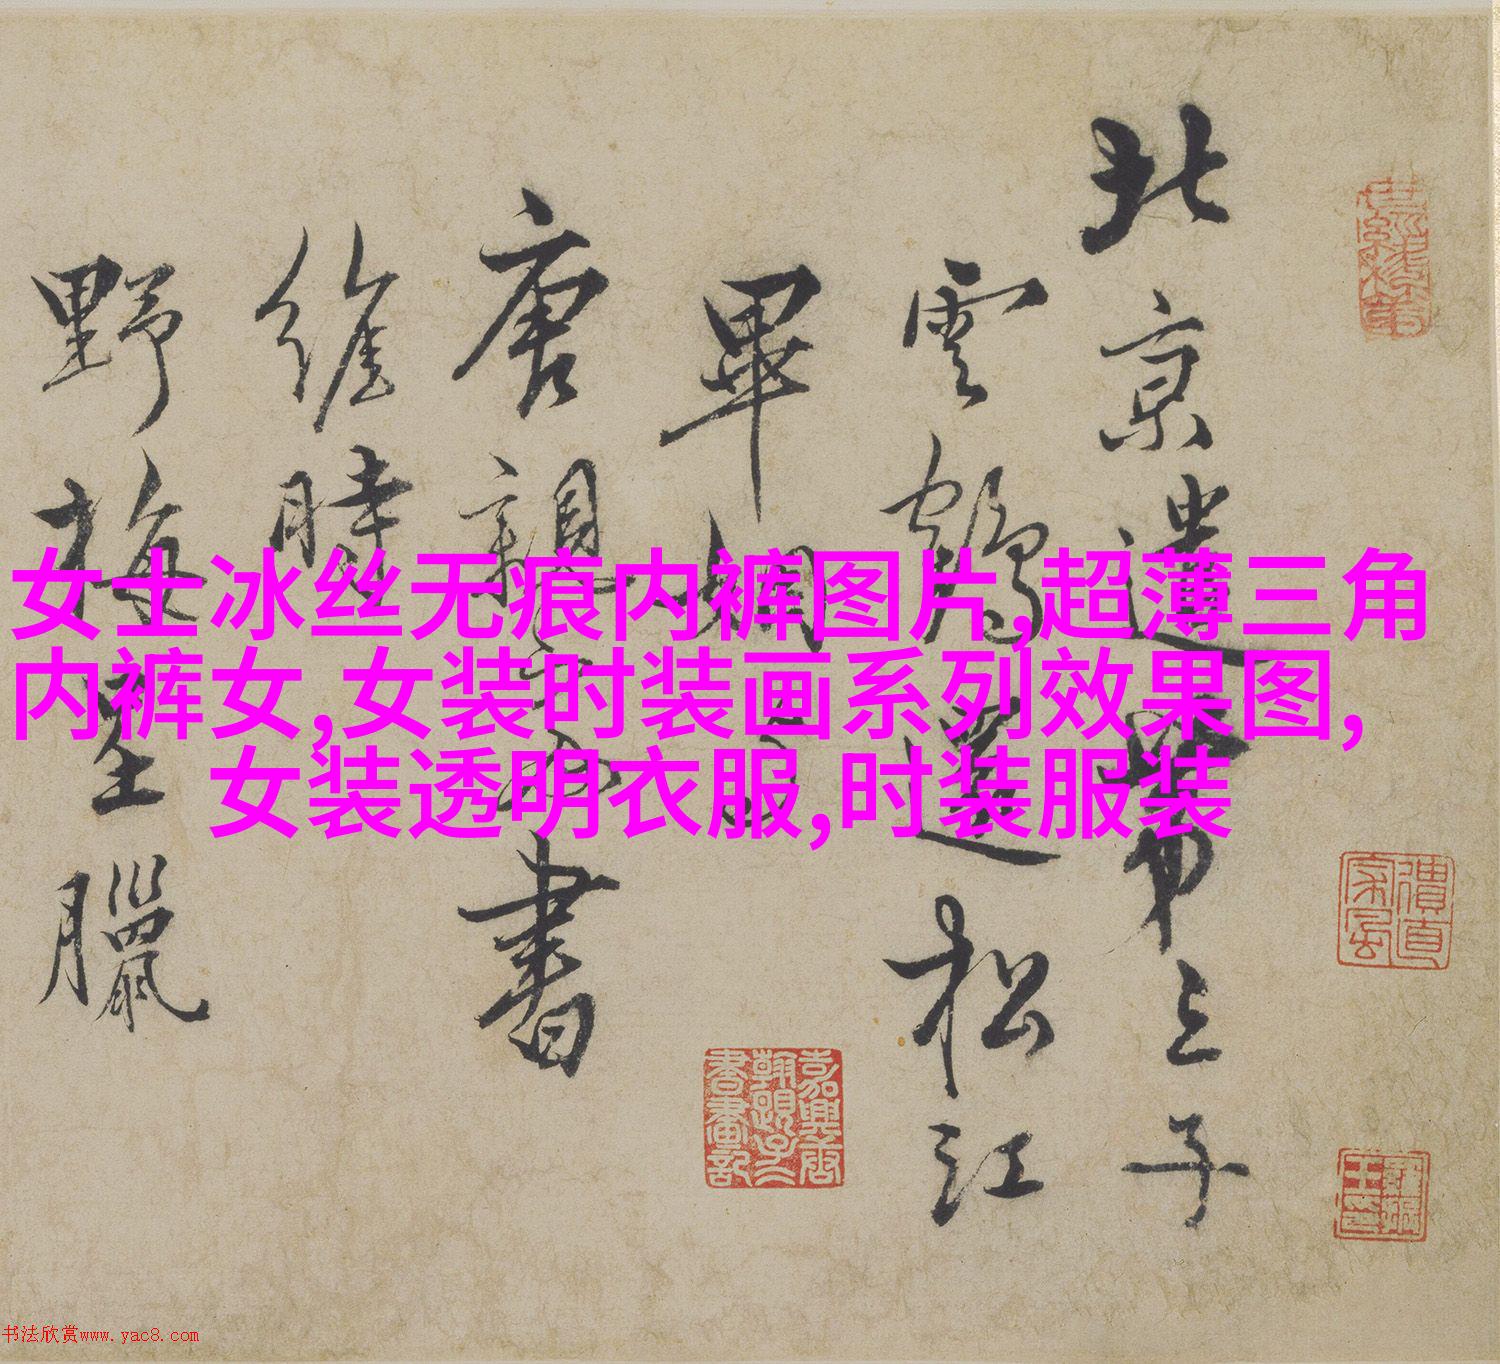 女士冰丝无痕内裤图片,超薄三角
内裤女,女装时装画系列效果图,
女装透明衣服,时装服装
北京遺第三子
雲鶴還松江
畢姻
唐親書
維時
野梅望臘
书法欣赏www.yac8.com